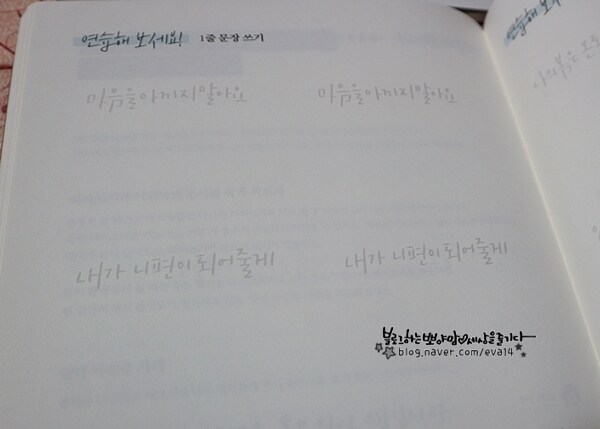 연습해 보세요! 1줄 문장 쓰기
마음을 아끼지 말아요 마음을 아끼지 말아요
내가 니편이 되어줄게 내가 니편이 되어줄게
블로그하는 뽀야맘 세상을 즐기다
blog.naver.com/eva14
연습해 보